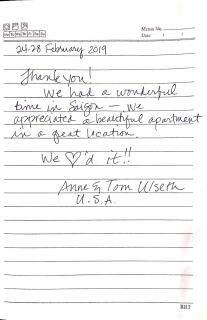 Memo No.
Date / /
24-28 February 2019
Thank you!
We had a wonderful
time in Saigon — we
appreciated a beautiful apartment
in a great location.
We ♡'d it!!
Anne & Tom Ulseth
U.S.A.